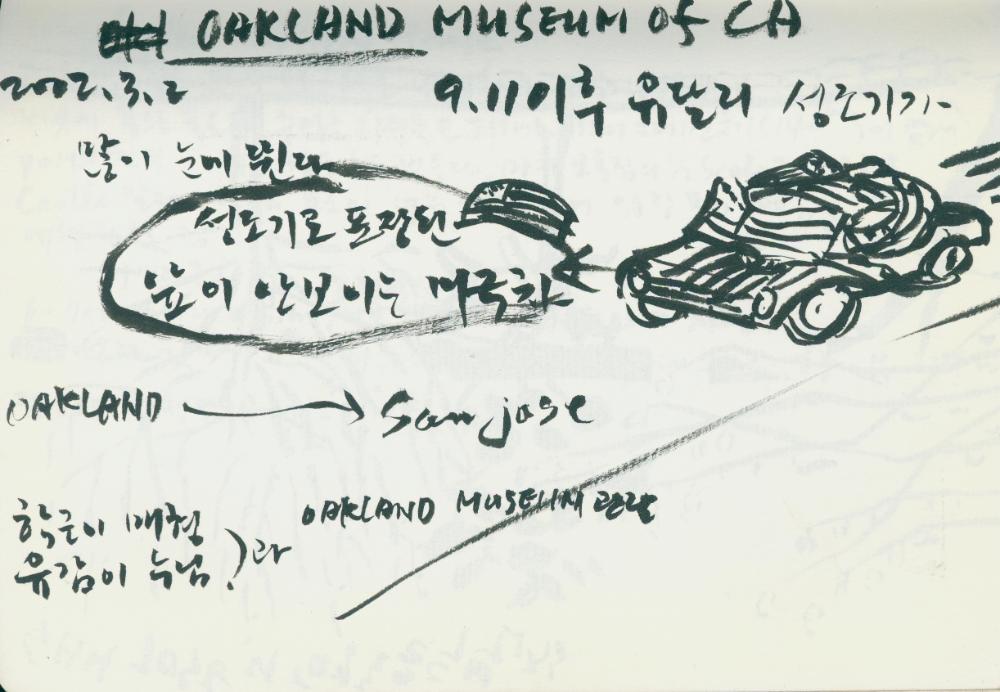 OAKLAND MUSEUM OF CA
2002.3.2
9.11 이후 유달리 성조기가
많이 눈에 띈다
성조기로 포장된
앞이 안보이는 미국차
OAKLAND → San jose
OAKLAND MUSEUM 관람
학근이 매형
유감이 누님 ) 과